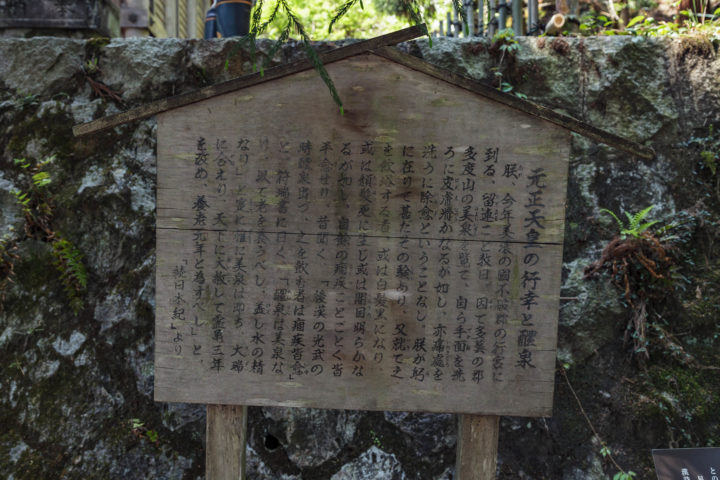 元正天皇の行幸と醴泉
朕、今年美濃の國不破郡の行宮に
到る、留連こと数日、因て多芸の郡
多度山の美泉を覧て、自ら手面を洗
ろに皮膚滑かなるが如し、亦痛處を
洗うに除愈ということなし、朕が躬
に在りて甚だその験あり、又就て之
を飲浴する者、或は白髪黒になり
或は頽髪更に生じ或は闇目明らかな
るが如し、自餘の痼疾ことごとく皆
平愈せり、昔聞く、「後漢の光武の
時醴泉出づ、之を飲む者は痼疾皆愈」
と、符瑞書に曰く、「醴泉は美泉な
り、以て老を養うべし、盖し水の精
なり」と寔に惟る美泉は即ち大瑞
に合えり、天下に大赦して霊亀三年
を改め、養老元年と為すべし」と
「続日本紀」より